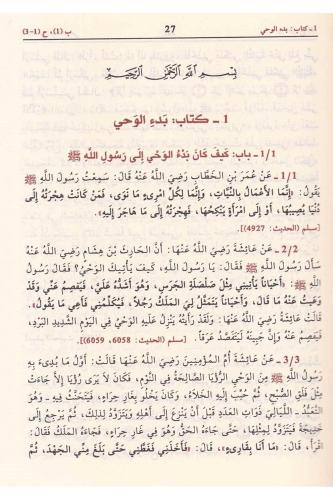 1 ـ كتاب: بدء الوحي
27
ب (1)، ح (1-3)
بِسْمِ اللَّهِ الرَّحْمَنِ الرَّحِيمِ
1 ـ كتاب: بَدْءِ الوَحي
1/1 ـ باب: كَيفَ كانَ بَدْءُ الوَحْيِ إِلَى رَسُولِ اللَّهِ ﷺ
1/1 ـ عَنْ عُمَرَ بْنِ الخَطَّابِ رَضِيَ اللَّهُ عَنْهُ قَالَ: سَمِعْتُ رَسُولَ اللَّهِ ﷺ يَقُولُ:
«إِنَّمَا الأَعْمَالُ بِالنِّيَّاتِ، وَإِنَّمَا لِكُلِّ امْرِئٍ مَا نَوَى، فَمَنْ كَانَتْ هِجْرَتُهُ إِلَى
دُنْيَا يُصِيبُهَا، أَوْ إِلَى امْرَأَةٍ يَنْكِحُهَا، فَهِجْرَتُهُ إِلَى مَا هَاجَرَ إِلَيهِ».
[مسلم (الحديث: 4927)].
2/2 ـ عَنْ عَائِشَةَ رَضِيَ اللَّهُ عَنْهَا: أَنَّ الحَارِثَ بْنَ هِشَامٍ رَضِيَ اللَّهُ عَنْهُ
سَأَلَ رَسُولَ اللَّهِ ﷺ فَقَالَ: يَا رَسُولَ اللَّهِ، كَيفَ يَأْتِيكَ الوَحْيُ؟ فَقَالَ رَسُولُ
اللَّهِ ﷺ: «أَحْيَاناً يَأْتِينِي مِثْلَ صَلْصَلَةِ الجَرَسِ، وَهُوَ أَشَدُّهُ عَلَيَّ، فَيَفْصِمُ عَنِّي وَقَدْ
وَعَيتُ عَنْهُ مَا قَالَ، وَأَحْيَاناً يَتَمَثَّلُ لِيَ المَلَكُ رَجُلاً، فَيُكَلِّمُنِي فَأَعِي مَا يَقُولُ».
قَالَتْ عَائِشَةُ رَضِيَ اللَّهُ عَنْهَا: وَلَقَدْ رَأَيتُهُ يَنْزِلُ عَلَيهِ الوَحْيُ فِي اليَوْمِ الشَّدِيدِ البَرْدِ،
فَيَفْصِمُ عَنْهُ وَإِنَّ جَبِينَهُ لَيَتَفَصَّدُ عَرَقاً. [مسلم (الحديث: 6058، 6059)].
3/3 ـ عَنْ عَائِشَةَ أُمِّ المُؤْمِنِينَ رَضِيَ اللَّهُ عَنْهَا قَالَتْ: أَوَّلُ مَا بُدِئَ بِهِ
رَسُولُ اللَّهِ ﷺ مِنَ الوَحْيِ الرُّؤْيَا الصَّالِحَةُ فِي النَّوْمِ، فَكَانَ لاَ يَرَى رُؤْيَا إِلاَّ جَاءَتْ
مِثْلَ فَلَقِ الصُّبْحِ، ثُمَّ حُبِّبَ إِلَيهِ الخَلاَءُ، وَكَانَ يَخْلُو بِغَارِ حِرَاءٍ، فَيَتَحَنَّثُ فِيهِ ـ وَهُوَ
التَّعَبُّدُ ـ اللَّيَالِيَ ذَوَاتِ العَدَدِ قَبْلَ أَنْ يَنْزِعَ إِلَى أَهْلِهِ، وَيَتَزَوَّدُ لِذلِكَ، ثُمَّ يَرْجِعُ إِلَى
خَدِيجَةَ فَيَتَزَوَّدُ لِمِثْلِهَا، حَتَّى جَاءَهُ الحَقُّ وَهُوَ فِي غَارِ حِرَاءٍ، فَجَاءَهُ المَلَكُ فَقَالَ:
اقْرَأْ، قَالَ: «مَا أَنَا بِقَارِئٍ». قَالَ: «فَأَخَذَنِي فَغَطَّنِي حَتَّى بَلَغَ مِنِّي الجَهْدَ، ثُمَّ